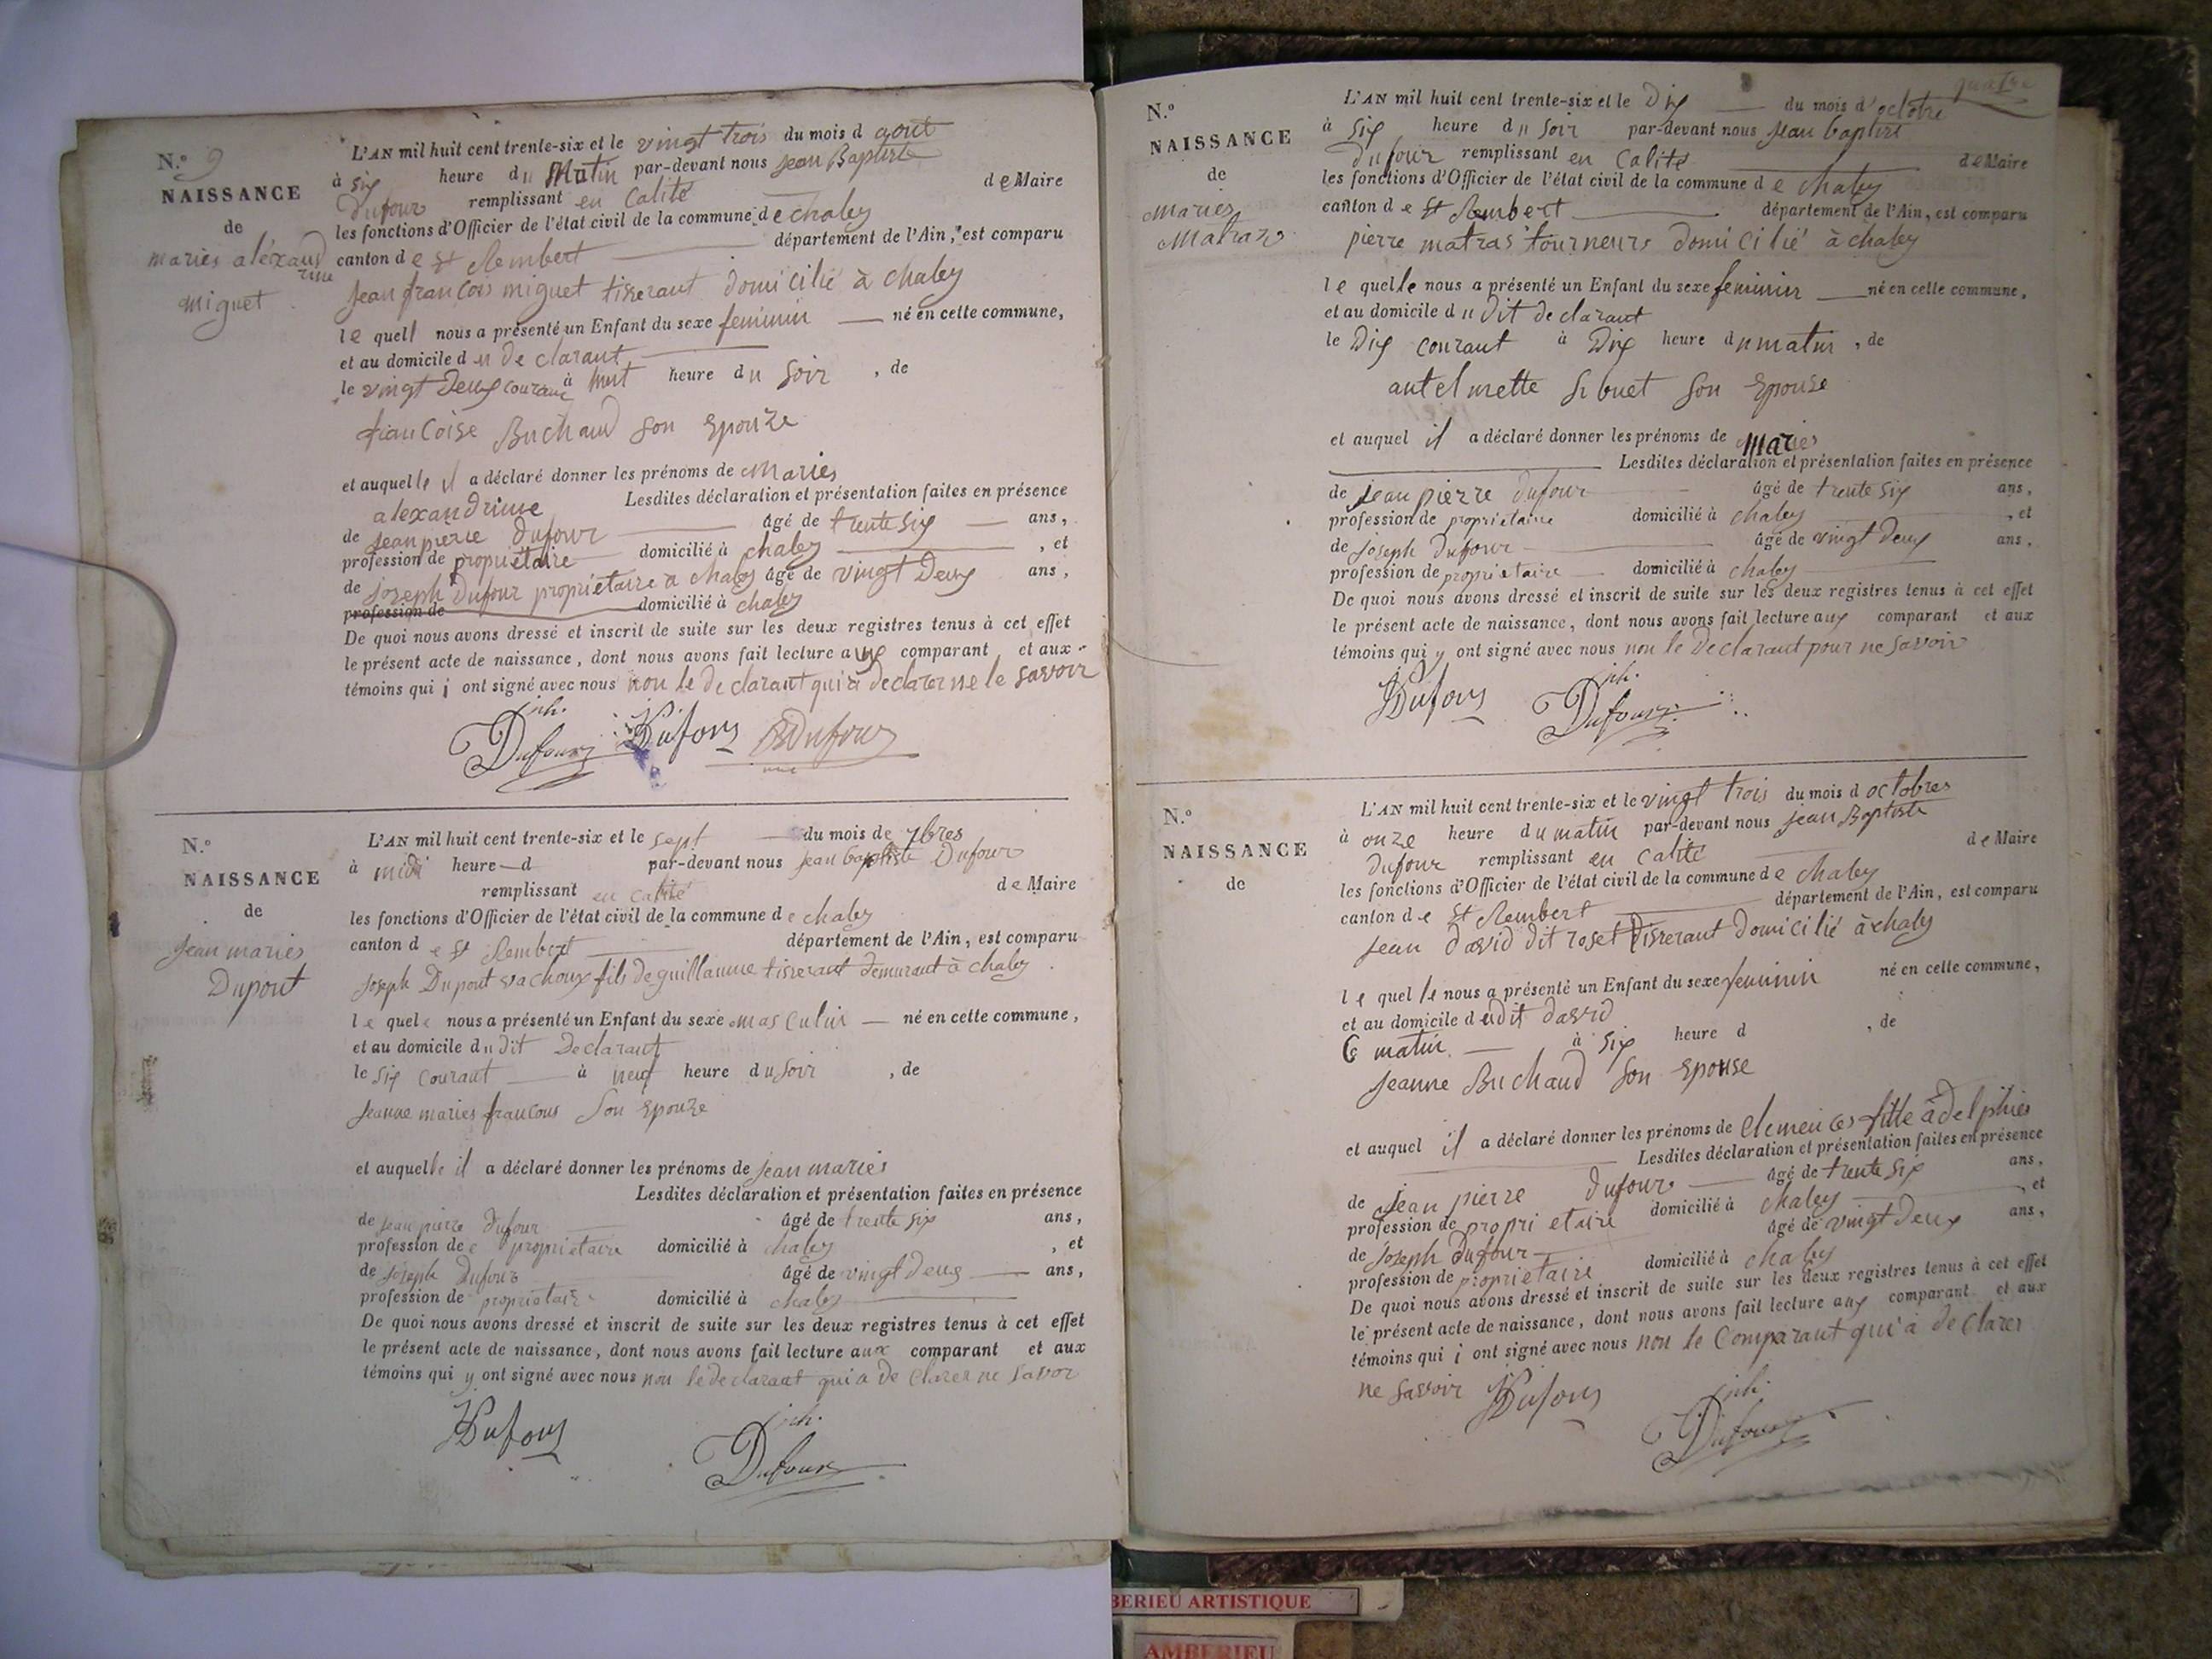 N.º 9
NAISSANCE
de
maries aléxand
rine
miguet
L'AN mil huit cent trente-six et le vingt trois du mois d aout
à six heure du Matin par-devant nous jean Baptiste
Dufour remplissant en Calité de Maire
les fonctions d'Officier de l'état civil de la commune de chaley
canton de St Rembert département de l'Ain, est comparu
jean francois miguet tisserant domicilié à chaley
le quel nous a présenté un Enfant du sexe feminin né en cette commune,
et au domicile du de clarant
le vingt Deux courant à huit heure du soir, de
francoise Buchaud son Epouze
et auquelle il a déclaré donner les prénoms de maries
alexandrine Lesdites déclaration et présentation faites en présence
de jean pierre Dufour âgé de trente six ans,
profession de propriétaire domicilié à chaley, et
de joseph Dufour propriétaire à chaley âgé de vingt Deux ans,
profession de domicilié à chaley
De quoi nous avons dressé et inscrit de suite sur les deux registres tenus à cet effet
le présent acte de naissance, dont nous avons fait lecture aux comparant et aux
témoins qui i ont signé avec nous non le de clarant qui à declarer ne le savoir
jph. Dufour JPDufour JBDufour
mre
N.º
NAISSANCE
de
jean maries
Dupont
L'AN mil huit cent trente-six et le sept du mois de 7bres
à midi heure d par-devant nous jean baptiste Dufour
remplissant en calité de Maire
les fonctions d'Officier de l'état civil de la commune de chaley
canton de St Rembert département de l'Ain, est comparu
joseph Dupont vachoux fils de guillaume tisserant demurant à chaley
le quele nous a présenté un Enfant du sexe masculin né en cette commune,
et au domicile du dit Declarant
le six courant à neuf heure du soir, de
jeanne maries francous son Epouze
et auquelle il a déclaré donner les prénoms de jean maries
Lesdites déclaration et présentation faites en présence
de jean pierre Dufour âgé de trente six ans,
profession de propriétaire domicilié à chaley, et
de joseph Dufour âgé de vingt deux ans,
profession de propriétaire domicilié à chaley
De quoi nous avons dressé et inscrit de suite sur les deux registres tenus à cet effet
le présent acte de naissance, dont nous avons fait lecture aux comparant et aux
témoins qui y ont signé avec nous non le declarant qui a de clarer ne savoir
JPDufour jph. Dufour
quatre
N.º
NAISSANCE
de
maries
Matras
L'AN mil huit cent trente-six et le Dix du mois d'octobre
à six heure du soir par-devant nous jean baptist
Dufour remplissant en Calité de Maire
les fonctions d'Officier de l'état civil de la commune de chaley
canton de St Rembert département de l'Ain, est comparu
pierre matras tourneurs domicilié à chaley
le quelle nous a présenté un Enfant du sexe feminin né en cette commune,
et au domicile du dit declarant
le Dix courant à Dix heure du matin, de
antelmette Sibuet son Epouse
et auquel il a déclaré donner les prénoms de Maries
Lesdites déclaration et présentation faites en présence
de jean pierre Dufour âgé de trente six ans,
profession de propriétaire domicilié à chaley, et
de joseph Dufour âgé de vingt deux ans,
profession de propriétaire domicilié à chaley
De quoi nous avons dressé et inscrit de suite sur les deux registres tenus à cet effet
le présent acte de naissance, dont nous avons fait lecture aux comparant et aux
témoins qui y ont signé avec nous non le Declarant pour ne savoir
JPDufour jph. Dufour
N.º
NAISSANCE
de
L'AN mil huit cent trente-six et le vingt trois du mois d octobres
à onze heure du matin par-devant nous jean Baptiste
Dufour remplissant en calité de Maire
les fonctions d'Officier de l'état civil de la commune de chaley
canton de St Rembert département de l'Ain, est comparu
jean david dit roset tisserant domicilié à chaley
le quel le nous a présenté un Enfant du sexe feminin né en cette commune,
et au domicile dudit david
Ce matin à six heure d, de
jeanne Buchaud son Epouse
et auquel il a déclaré donner les prénoms de Clemences fille adelphies
Lesdites déclaration et présentation faites en présence
de jean pierre Dufour âgé de trente six ans,
profession de propriétaire domicilié à chaley, et
de joseph dufour âgé de vingt deux ans,
profession de propriétaire domicilié à chaley
De quoi nous avons dressé et inscrit de suite sur les deux registres tenus à cet effet
le présent acte de naissance, dont nous avons fait lecture aux comparant et aux
témoins qui i ont signé avec nous non le Comparant qui à declarer
ne savoir JPDufour jph. Dufour
BERIEU ARTISTIQUE
AMBERIEU